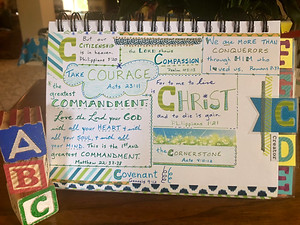 But our
CITIZENSHIP
is in heaven.
Philippians 3:20
TAKE COURAGE
Acts 23:11
the greatest
COMMANDMENT:
Love the Lord your GOD
with all your HEART & with
all your SOUL & with all
your MIND. This is the 1st &
greatest COMMANDMENT.
Matthew 22:37-38
the LORD
COMPASSION
We are MORE THAN
CONQUERORS
through HIM who
loved us.
For to me to live is
CHRIST
and to die is gain.
Philippians 1:21
the CORNERSTONE
Acts 4:11-12
Covenant
Creator
C
A
B
C